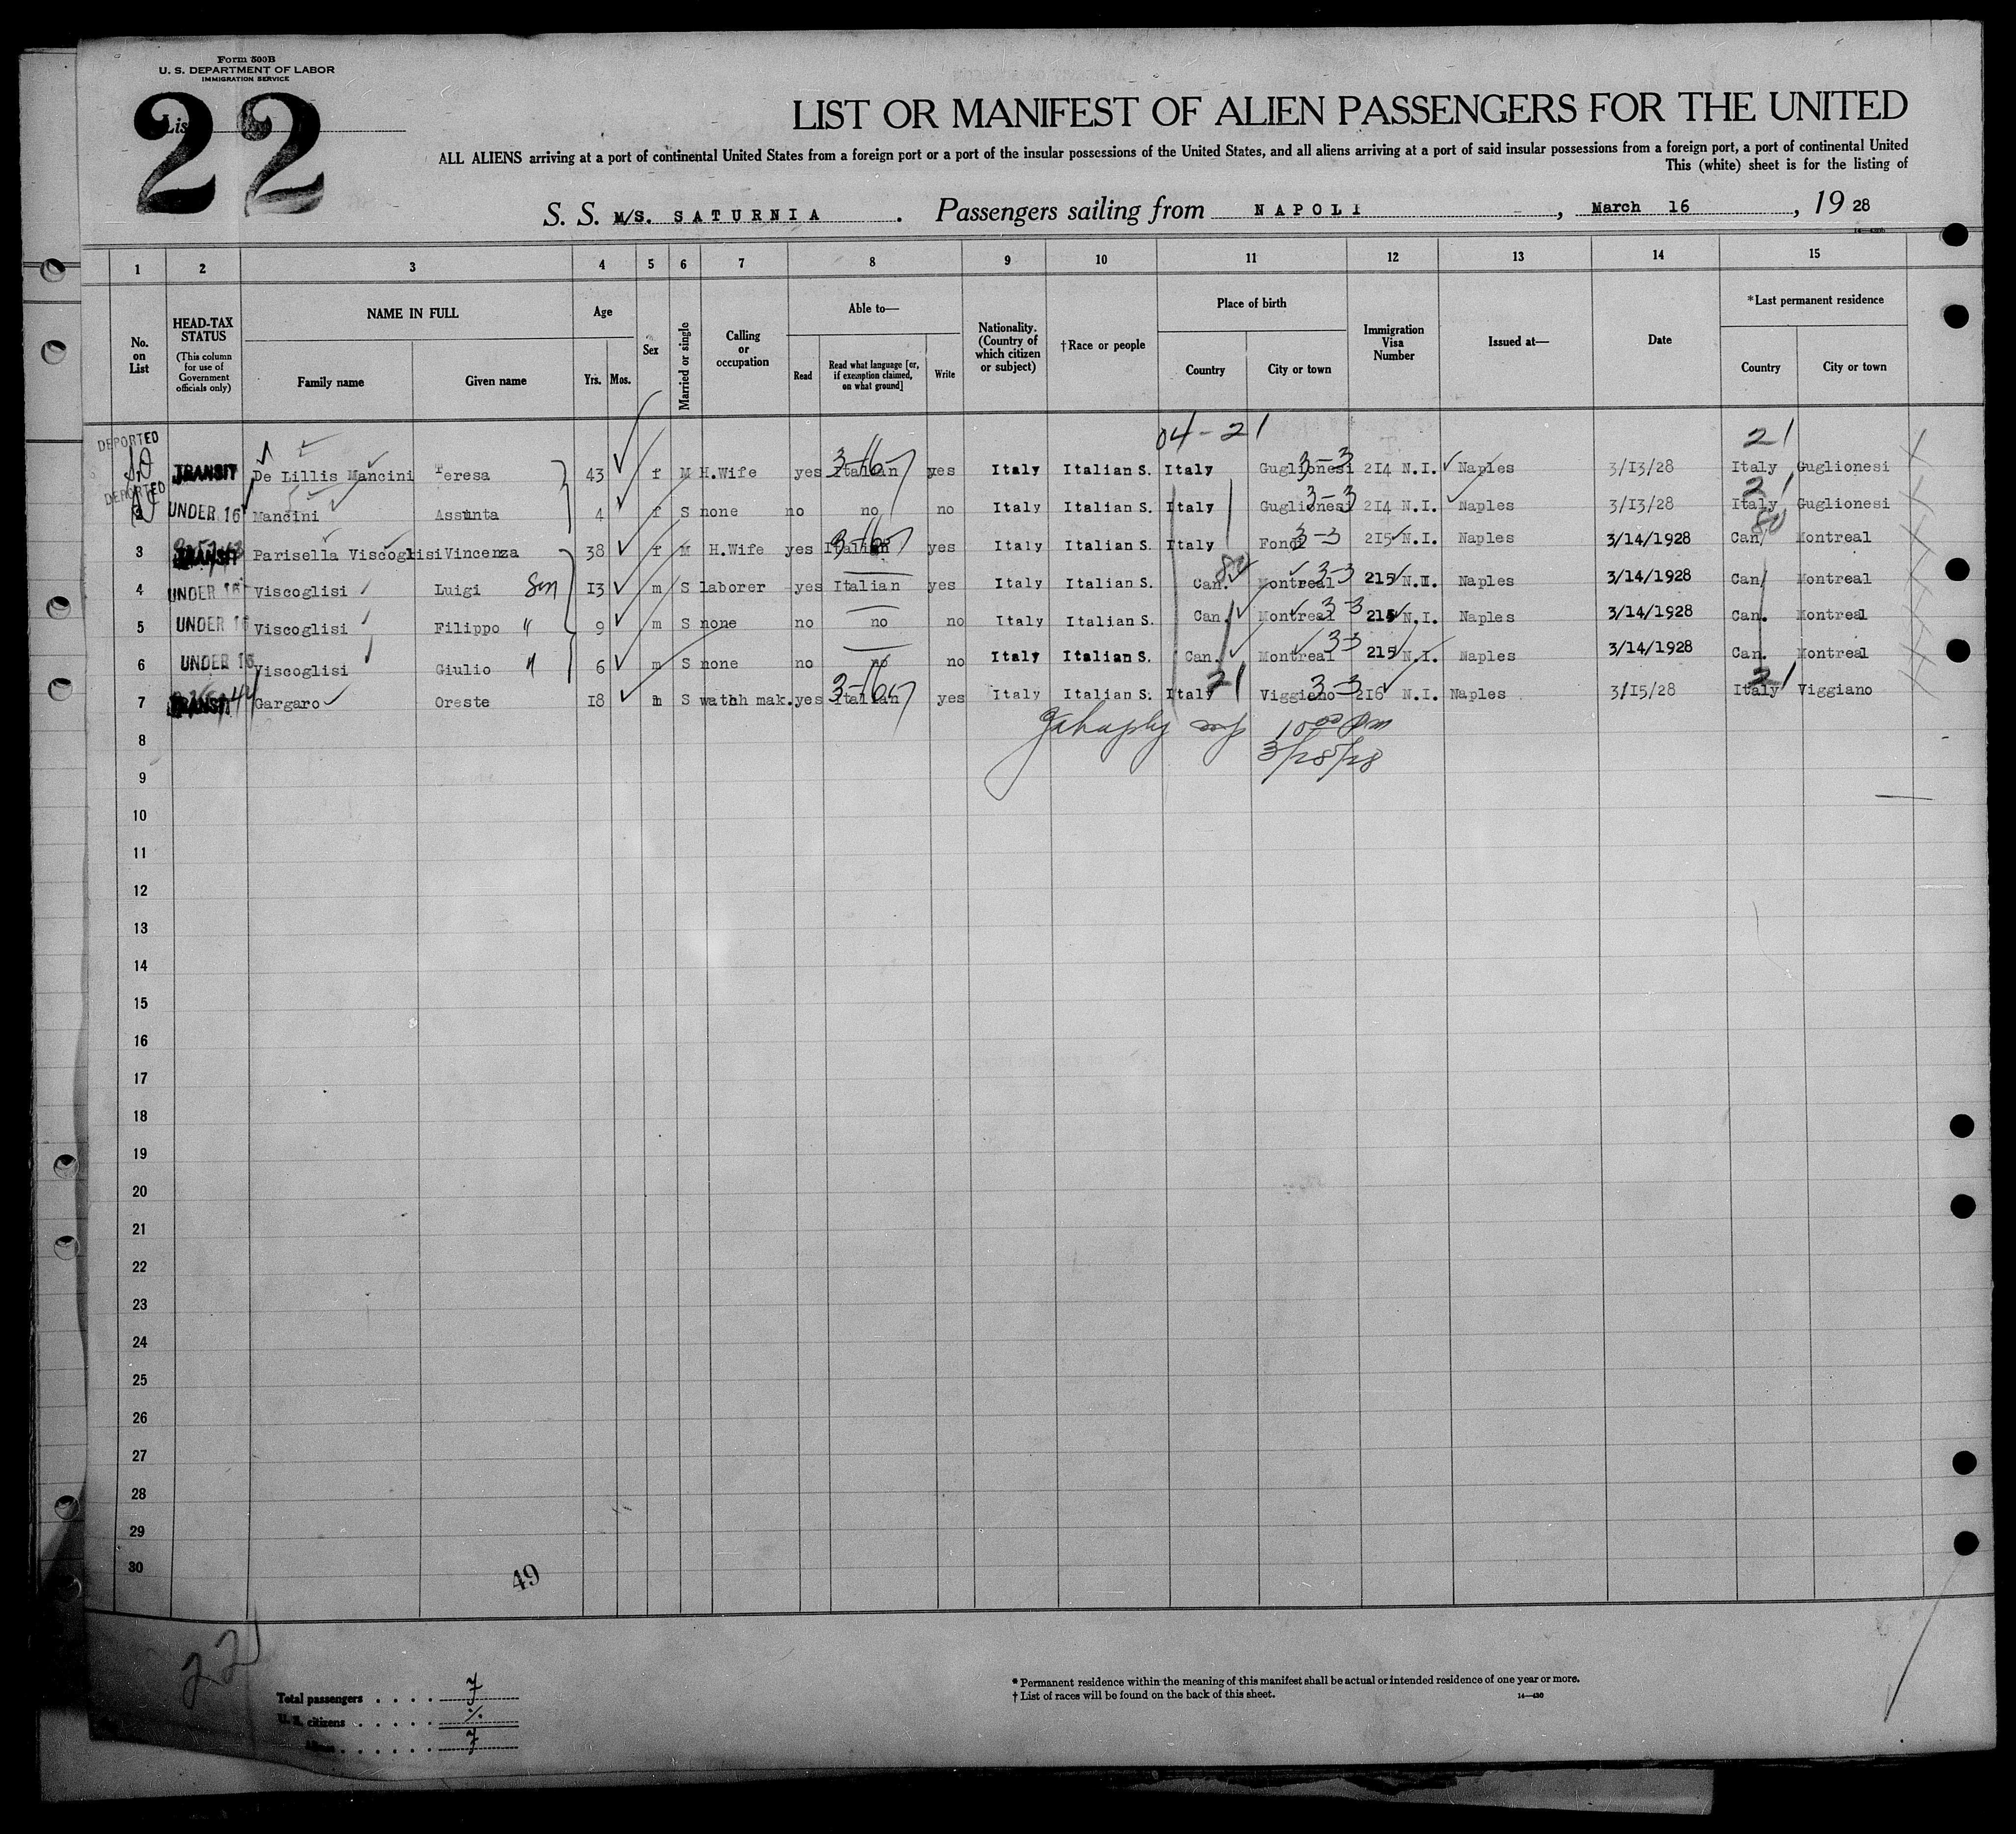 Form 500B
U. S. DEPARTMENT OF LABOR
IMMIGRATION SERVICE
List
22
LIST OR MANIFEST OF ALIEN PASSENGERS FOR THE UNITED
ALL ALIENS arriving at a port of continental United States from a foreign port or a port of the insular possessions of the United States, and all aliens arriving at a port of said insular possessions from a foreign port, a port of continental United
This (white) sheet is for the listing of
S. S. M/S. SATURNIA . Passengers sailing from NAPOLI , March 16 , 19 28
1 2 3 4 5 6 7 8 9 10 11 12 13 14 15
No. on List
HEAD-TAX STATUS (This column for use of Government officials only)
NAME IN FULL Family name Given name
Age Yrs. Mos.
Sex
Married or single
Calling or occupation
Able to— Read Read what language [or, if exemption claimed, on what ground] Write
Nationality. (Country of which citizen or subject)
†Race or people
Place of birth Country City or town
Immigration Visa Number
Issued at—
Date
*Last permanent residence Country City or town
04-21 21
DEPORTED
TRANSIT De Lillis Mancini Teresa 43 f M H.Wife yes Italian 3-16 yes Italy Italian S. Italy Guglionesi 3-3 214 N.I. Naples 3/13/28 Italy Guglionesi
DEPORTED
2 UNDER 16 Mancini Assunta 4 f S none no no no Italy Italian S. Italy Guglionesi 3-3 214 N.I. Naples 3/13/28 Italy 21 Guglionesi
3 TRANSIT Parisella Viscoglisi Vincenza 38 f M H.Wife yes Italian 3-16 yes Italy Italian S. Italy Fondi 3-3 215 N.I. Naples 3/14/1928 Can. 80 Montreal
4 UNDER 16 Viscoglisi Luigi Son 13 m S laborer yes Italian yes Italy Italian S. Can. 80 Montreal 3-3 215 N.I. Naples 3/14/1928 Can. Montreal
5 UNDER 16 Viscoglisi Filippo " 9 m S none no no no Italy Italian S. Can. Montreal 3-3 215 N.I. Naples 3/14/1928 Can. Montreal
6 UNDER 16 Viscoglisi Giulio " 6 m S none no no no Italy Italian S. Can. Montreal 3-3 215 N.I. Naples 3/14/1928 Can. Montreal
7 TRANSIT Gargaro Oreste 18 m S watch mak. yes Italian 3-16 yes Italy Italian S. Italy 21 Viggiano 3-3 216 N.I. Naples 3/15/28 Italy 21 Viggiano
10 00 Pm
3/28/28
8
9
10
11
12
13
14
15
16
17
18
19
20
21
22
23
24
25
26
27
28
29
30
49
22
Total passengers . . . . 7
U. S. citizens . . . . . %
Aliens . . . . . . 7
* Permanent residence within the meaning of this manifest shall be actual or intended residence of one year or more.
† List of races will be found on the back of this sheet.
14—430